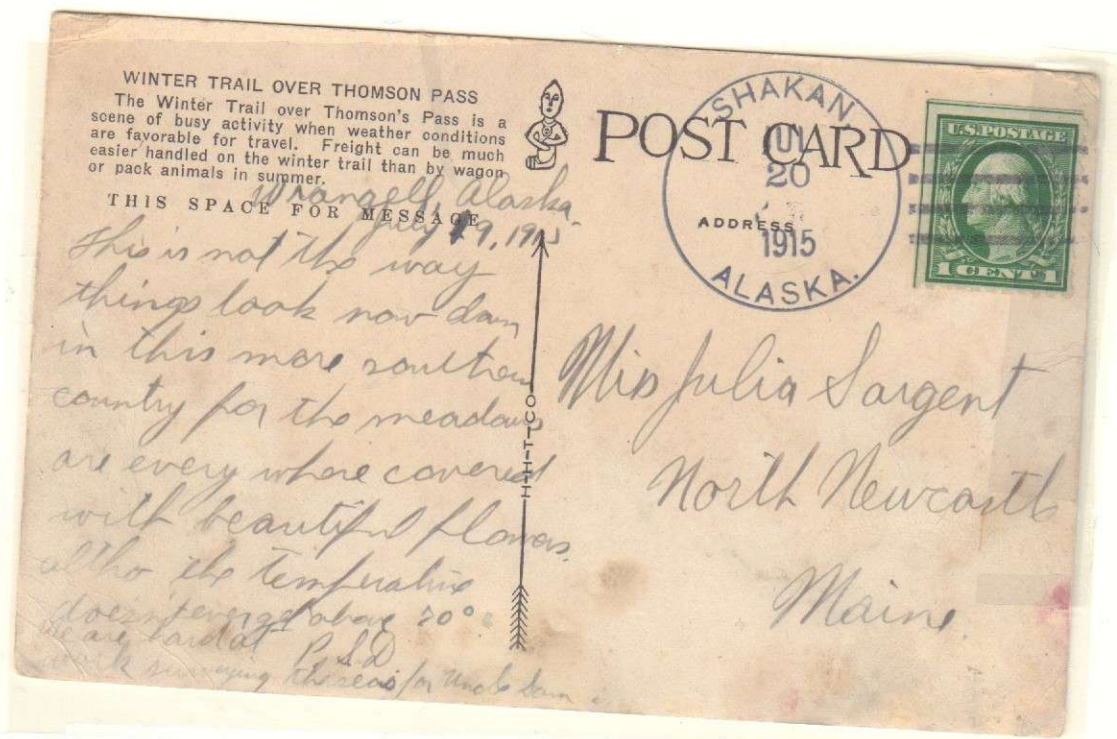 WINTER TRAIL OVER THOMSON PASS
The Winter Trail over Thomson's Pass is a
scene of busy activity when weather conditions
are favorable for travel. Freight can be much
easier handled on the winter trail than by wagon
or pack animals in summer.
THIS SPACE FOR MESSAGE
Wrangell, Alaska.
July 19, 1915
This is not the way
things look now down
in this more southern
country for the meadows
are every where covered
with beautiful flowers.
altho the temperature
doesn't ever get above 70°
We are hard at
work surveying the seas for Uncle Sam
P.S.D
H-H-T-CO.
POST CARD
ADDRESS
SHAKAN
20
1915
ALASKA.
U.S. POSTAGE
1 CENT 1
Miss Julia Sargent
North Newcastle
Maine.